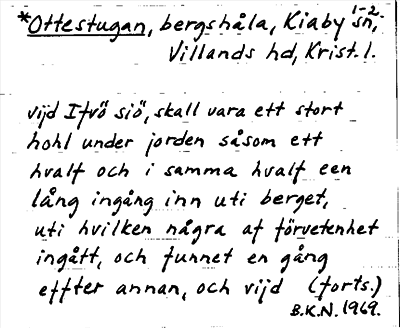 1-2
*Ottestugan, bergshåla, Kiaby sn,
Villands hd, Krist. l.
vijd Ifvö siö, skall vara ett stort
hohl under jorden såsom ett
hvalf och i samma hvalf een
lång ingång inn uti berget,
uti hvilken några af förvetenhet
ingått, och funnet en gång
effter annan, och vijd (forts.)
B.K.N. 1969.